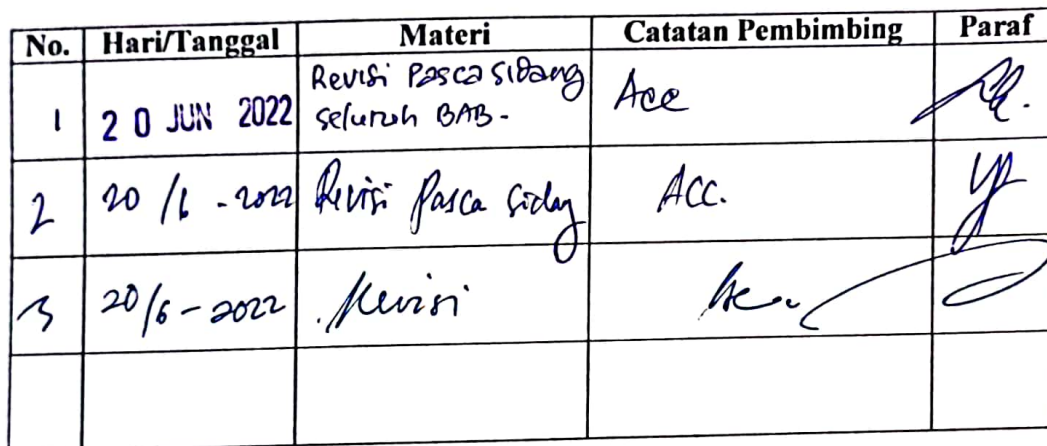 No. Hari/Tanggal Materi Catatan Pembimbing Paraf
Revisi Pasca Sidang
1 20 JUN 2022 seluruh BAB- Acc
2 20/6-2022 Revisi Pasca Sidang Acc.
3 20/6-2022 Revisi Acc